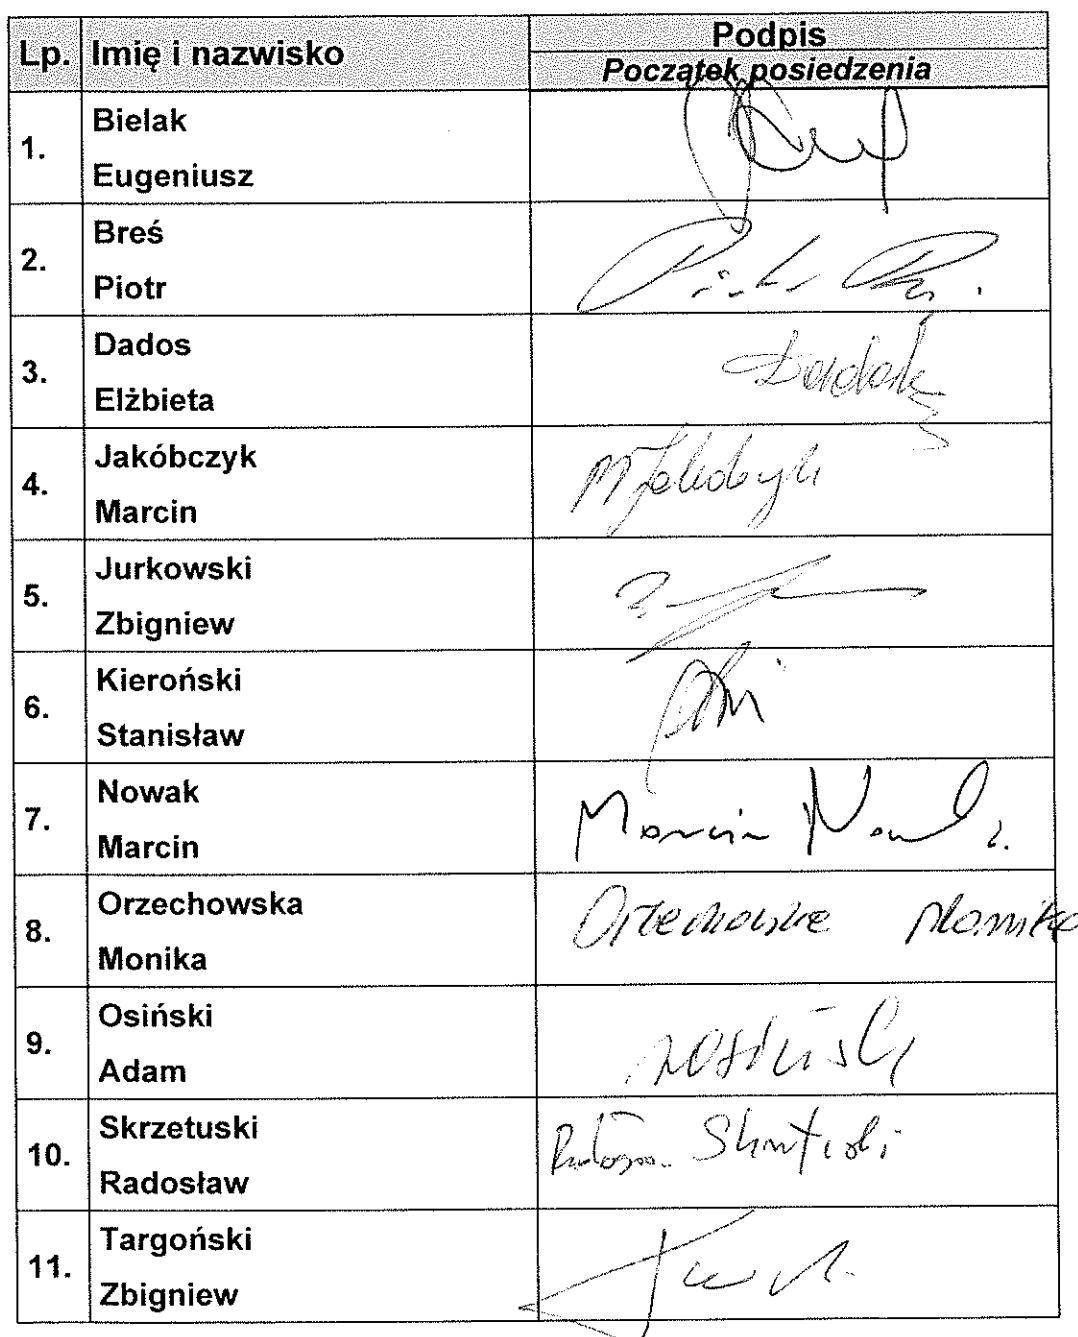 Lp. Imię i nazwisko Podpis
Początek posiedzenia
1. Bielak
Eugeniusz
2. Breś
Piotr
3. Dados
Elżbieta
4. Jakóbczyk
Marcin
5. Jurkowski
Zbigniew
6. Kieroński
Stanisław
7. Nowak
Marcin
Marcin Nowak
8. Orzechowska
Monika
Orzechowska Monika
9. Osiński
Adam
AOsiński
10. Skrzetuski
Radosław
Skrzetuski
11. Targoński
Zbigniew